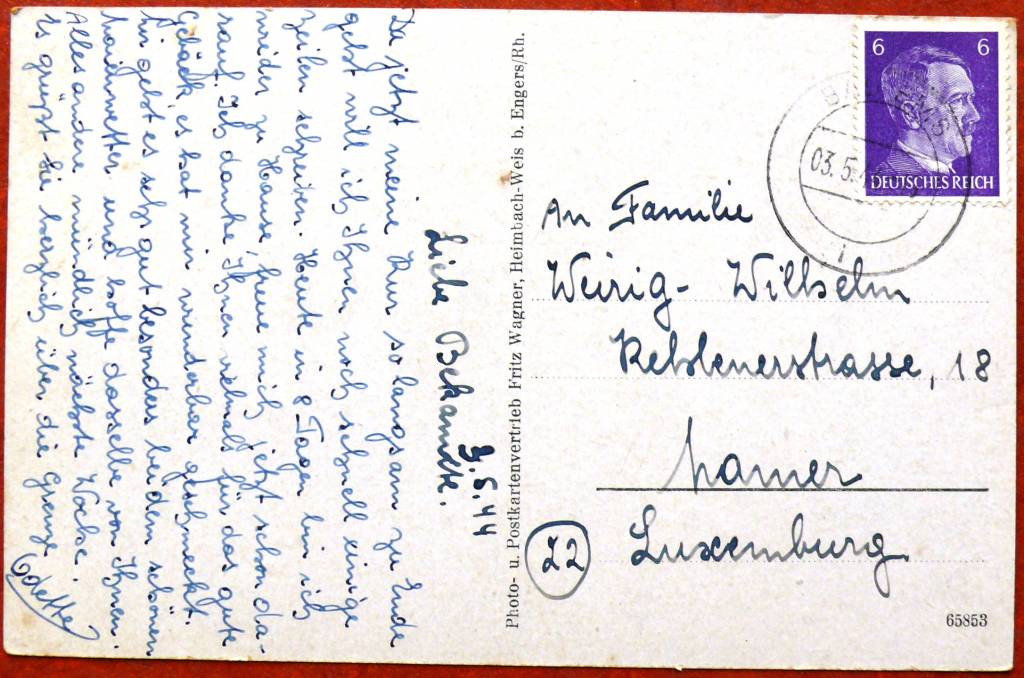 3.5.44
Liebe Bekannte.
Da jetzt meine Kur so langsam zu Ende
geht will ich Ihnen noch schnell einige
Zeilen schreiben. Heute in 8 Tagen bin ich
wieder zu Hause, freue mich jetzt schon da-
rauf. Ich danke Ihnen vielmals für das gute
Gebäck, es hat mir wunderbar geschmeckt.
hir geht es sehr gut besonders bei dem schönen
Maiwetter und hoffe dasselbe von Ihnen.
Alles andere mündlich nächste Woche.
Es grüsst Sie herzlich über die Grenze
Odette
Photo- u. Postkartenvertrieb Fritz Wagner, Heimbach-Weis b. Engers/Rh.
6 6
DEUTSCHES REICH
03.5.
An Familie
Weirig- Wilhelm
Kehlenerstrasse, 18
Mamer
22
Luxemburg
65853